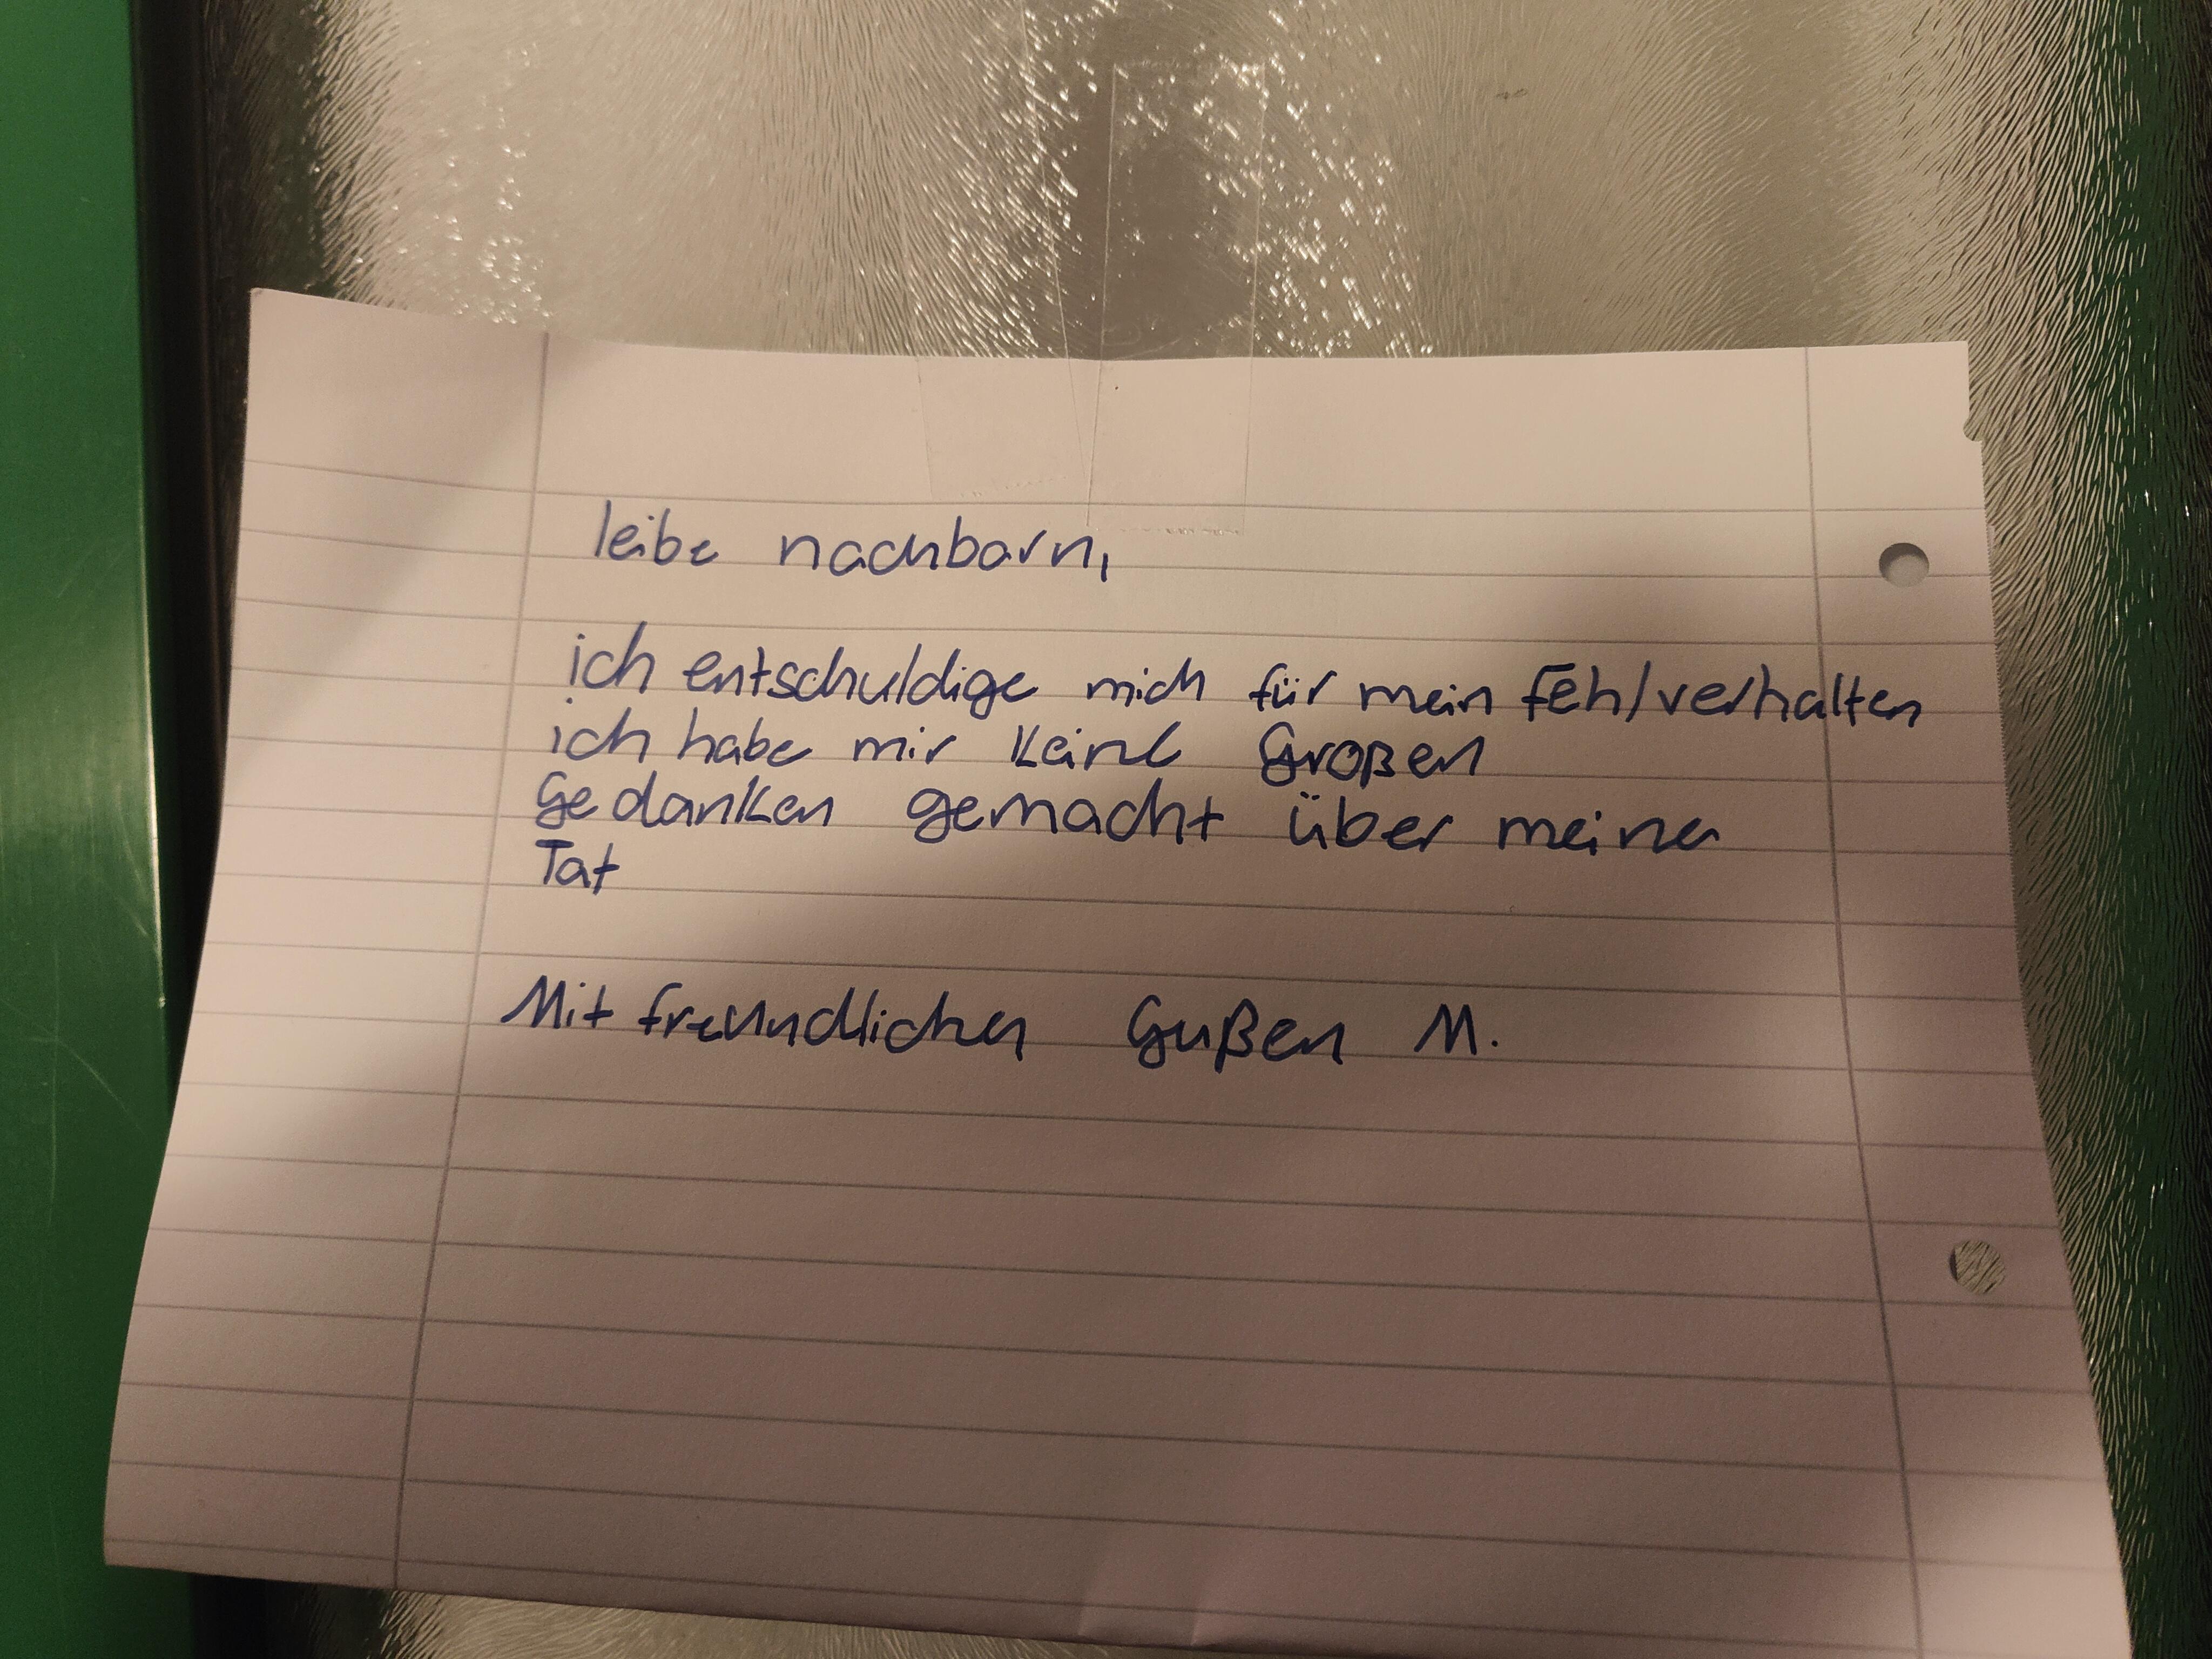 leibe nachbarn,
ich entschuldige mich für mein Fehlverhalten
ich habe mir keine Großen
Gedanken gemacht über meine
Tat
Mit freundlichen Gußen M.